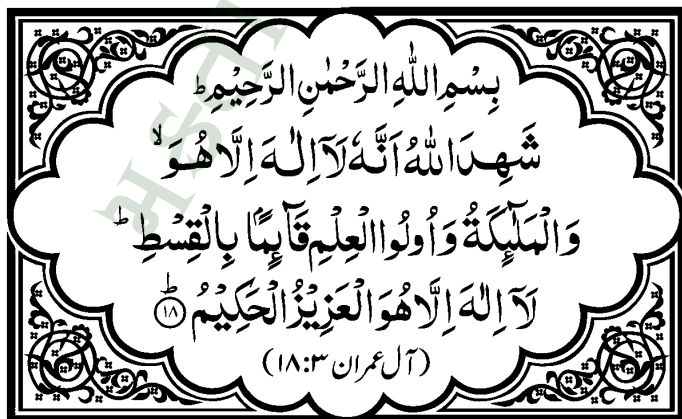 بِسْمِ اللّٰهِ الرَّحْمٰنِ الرَّحِيْمِ ؕ
شَهِدَ اللّٰهُ اَنَّهٗ لَاۤ اِلٰهَ اِلَّا هُوَ ۙ
وَالْمَلٰٓئِكَةُ وَاُولُوا الْعِلْمِ قَآئِمًۢا بِالْقِسْطِ ؕ
لَاۤ اِلٰهَ اِلَّا هُوَ الْعَزِيْزُ الْحَكِيْمُ ؕ ﴿۱۸﴾
(آل عمران ۱۸:۳)